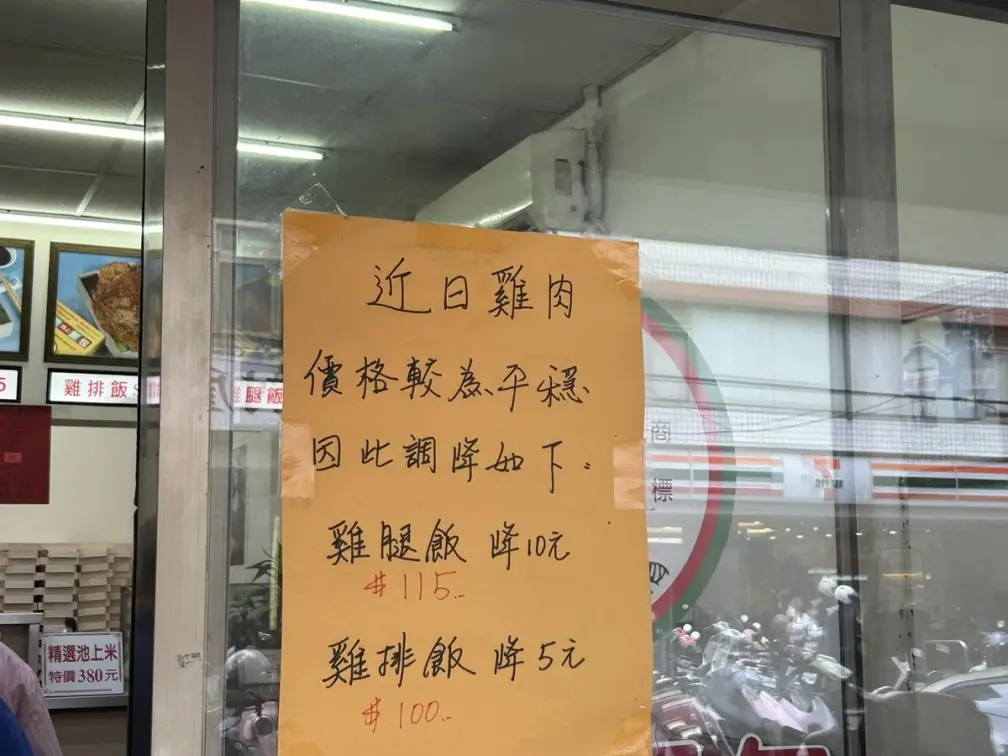 近日雞肉
價格較為平穩
因此調降如下。
雞腿飯 降10元
#115..
雞排飯 降5元
#100..
雞排飯
雞腿飯
5
精選池上米
特價380元
商
標
7